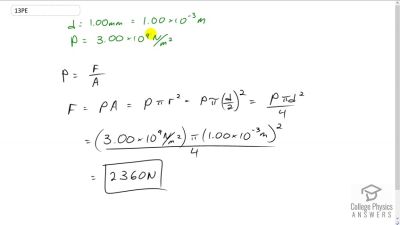 13PE
d: 1.00mm = 1.00×10⁻³ m
P = 3.00×10⁹ N/m²
P = F/A
F = PA = Pπr² = Pπ(d/2)² = Pπd²/4
= (3.00×10⁹ N/m²) π (1.00×10⁻³m)²/4
= 2360N
College Physics
ANSWERS